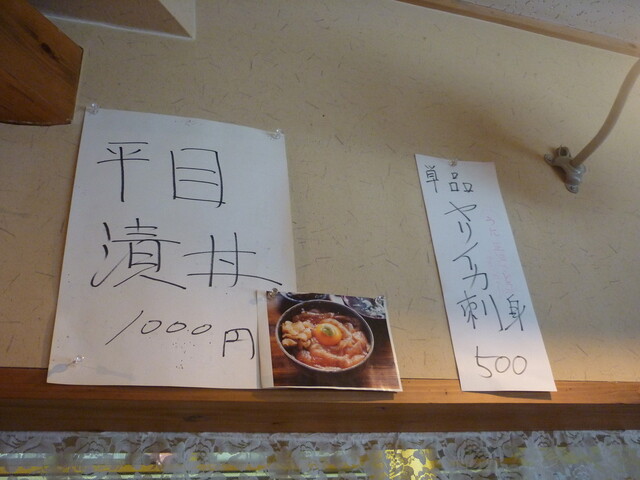 平目
漬丼
1000円
単品
ヤリイカ刺身
500